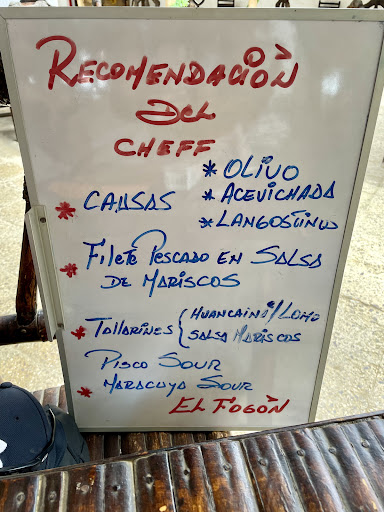 RECOMENDACIÓN
DEL
CHEFF
* CAUSAS
* OLIVO
* ACEVICHADA
* LANGOSTINOS
* FILETE PESCADO EN SALSA
DE MARISCOS
* TALLARINES { HUANCAINA/LOMO
SALSA MARISCOS
PISCO SOUR
* MARACUYA SOUR
EL FOGÓN